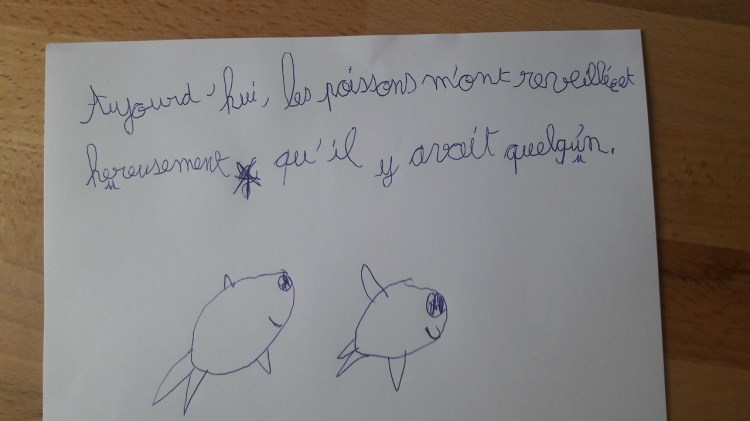 Aujourd'hui, les poissons m'ont reveillée et
heureusement qu'il y avait quelqún.